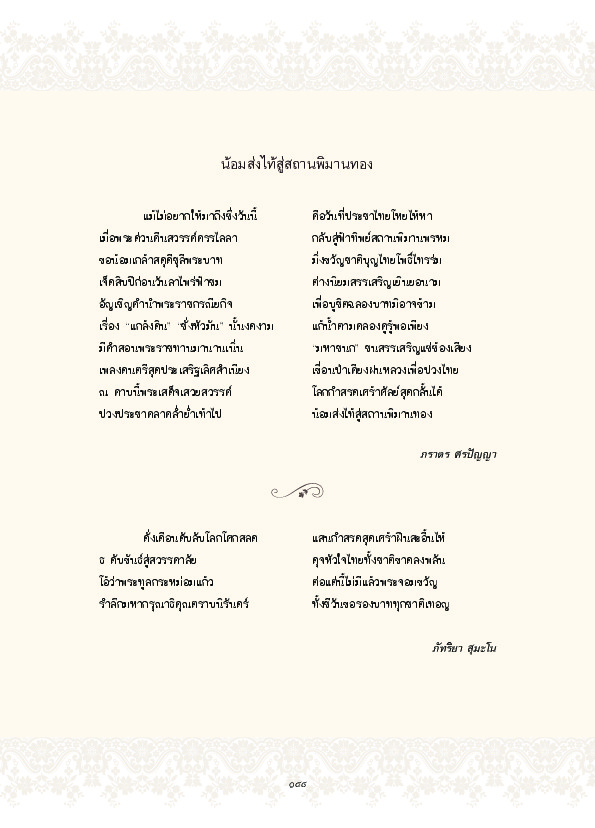 น้อมส่งไท้สู่สถานพิมานทอง
แม้ไม่อยากให้มาถึงซึ่งวันนี้ คือวันที่ประชาไทยโหยไห้หา
เมื่อพระด่วนคืนสวรรค์ครรไลลา กลับสู่ฟ้าทิพย์สถานพิมานพรหม
ขอน้อมเกล้าสดุดีธุลีพระบาท มิ่งขวัญชาติบุญไทยโพธิ์ไทรร่ม
เจ็ดสิบปีก่อนวันลาไพร่ฟ้าชม ต่างนิยมสรรเสริญเยินยอนาม
อัญเชิญคำนำพระราชกรณียกิจ เพื่ออุทิศฉลองบาทมิอาจข้าม
เรื่อง “แกล้งดิน” “ชั่งหัวมัน” นั้นงดงาม แก้น้ำตามคลองคูรู้พอเพียง
มีคำสอนพระราชทานมานานเนิ่น “มหาชนก” ชนสรรเสริญแซ่ซ้องเสียง
เพลงดนตรีสุดประเสริฐเลิศสำเนียง เขื่อนป่าเคียงฝนหลวงเพื่อปวงไทย
ณ คานนี้พระเสด็จเสวยสวรรค์ โลกกำสรดเศร้าศัลย์สุดกลั้นได้
ปวงประชาคลาคล่ำย่ำเท้าไป น้อมส่งไท้สู่สถานพิมานทอง
ภราดร ศรปัญญา
ดั่งเดือนดับลับโลกโศกสลด แสนกำสรดสุดเศร้าฝืนสะอื้นไห้
ธ ดับขันธ์สู่สวรรคาลัย ดุจหัวใจไทยทั้งชาติขาดลงพลัน
โอ้ว่าพระทูลกระหม่อมแก้ว ต่อแต่นี้ไม่มีแล้วพระจอมขวัญ
รำลึกมหากรุณาธิคุณตราบนิรันดร์ ทั้งชีวันขอรองบาททุกชาติเทอญ
ภัทริยา สุมะโน
๑๔๘